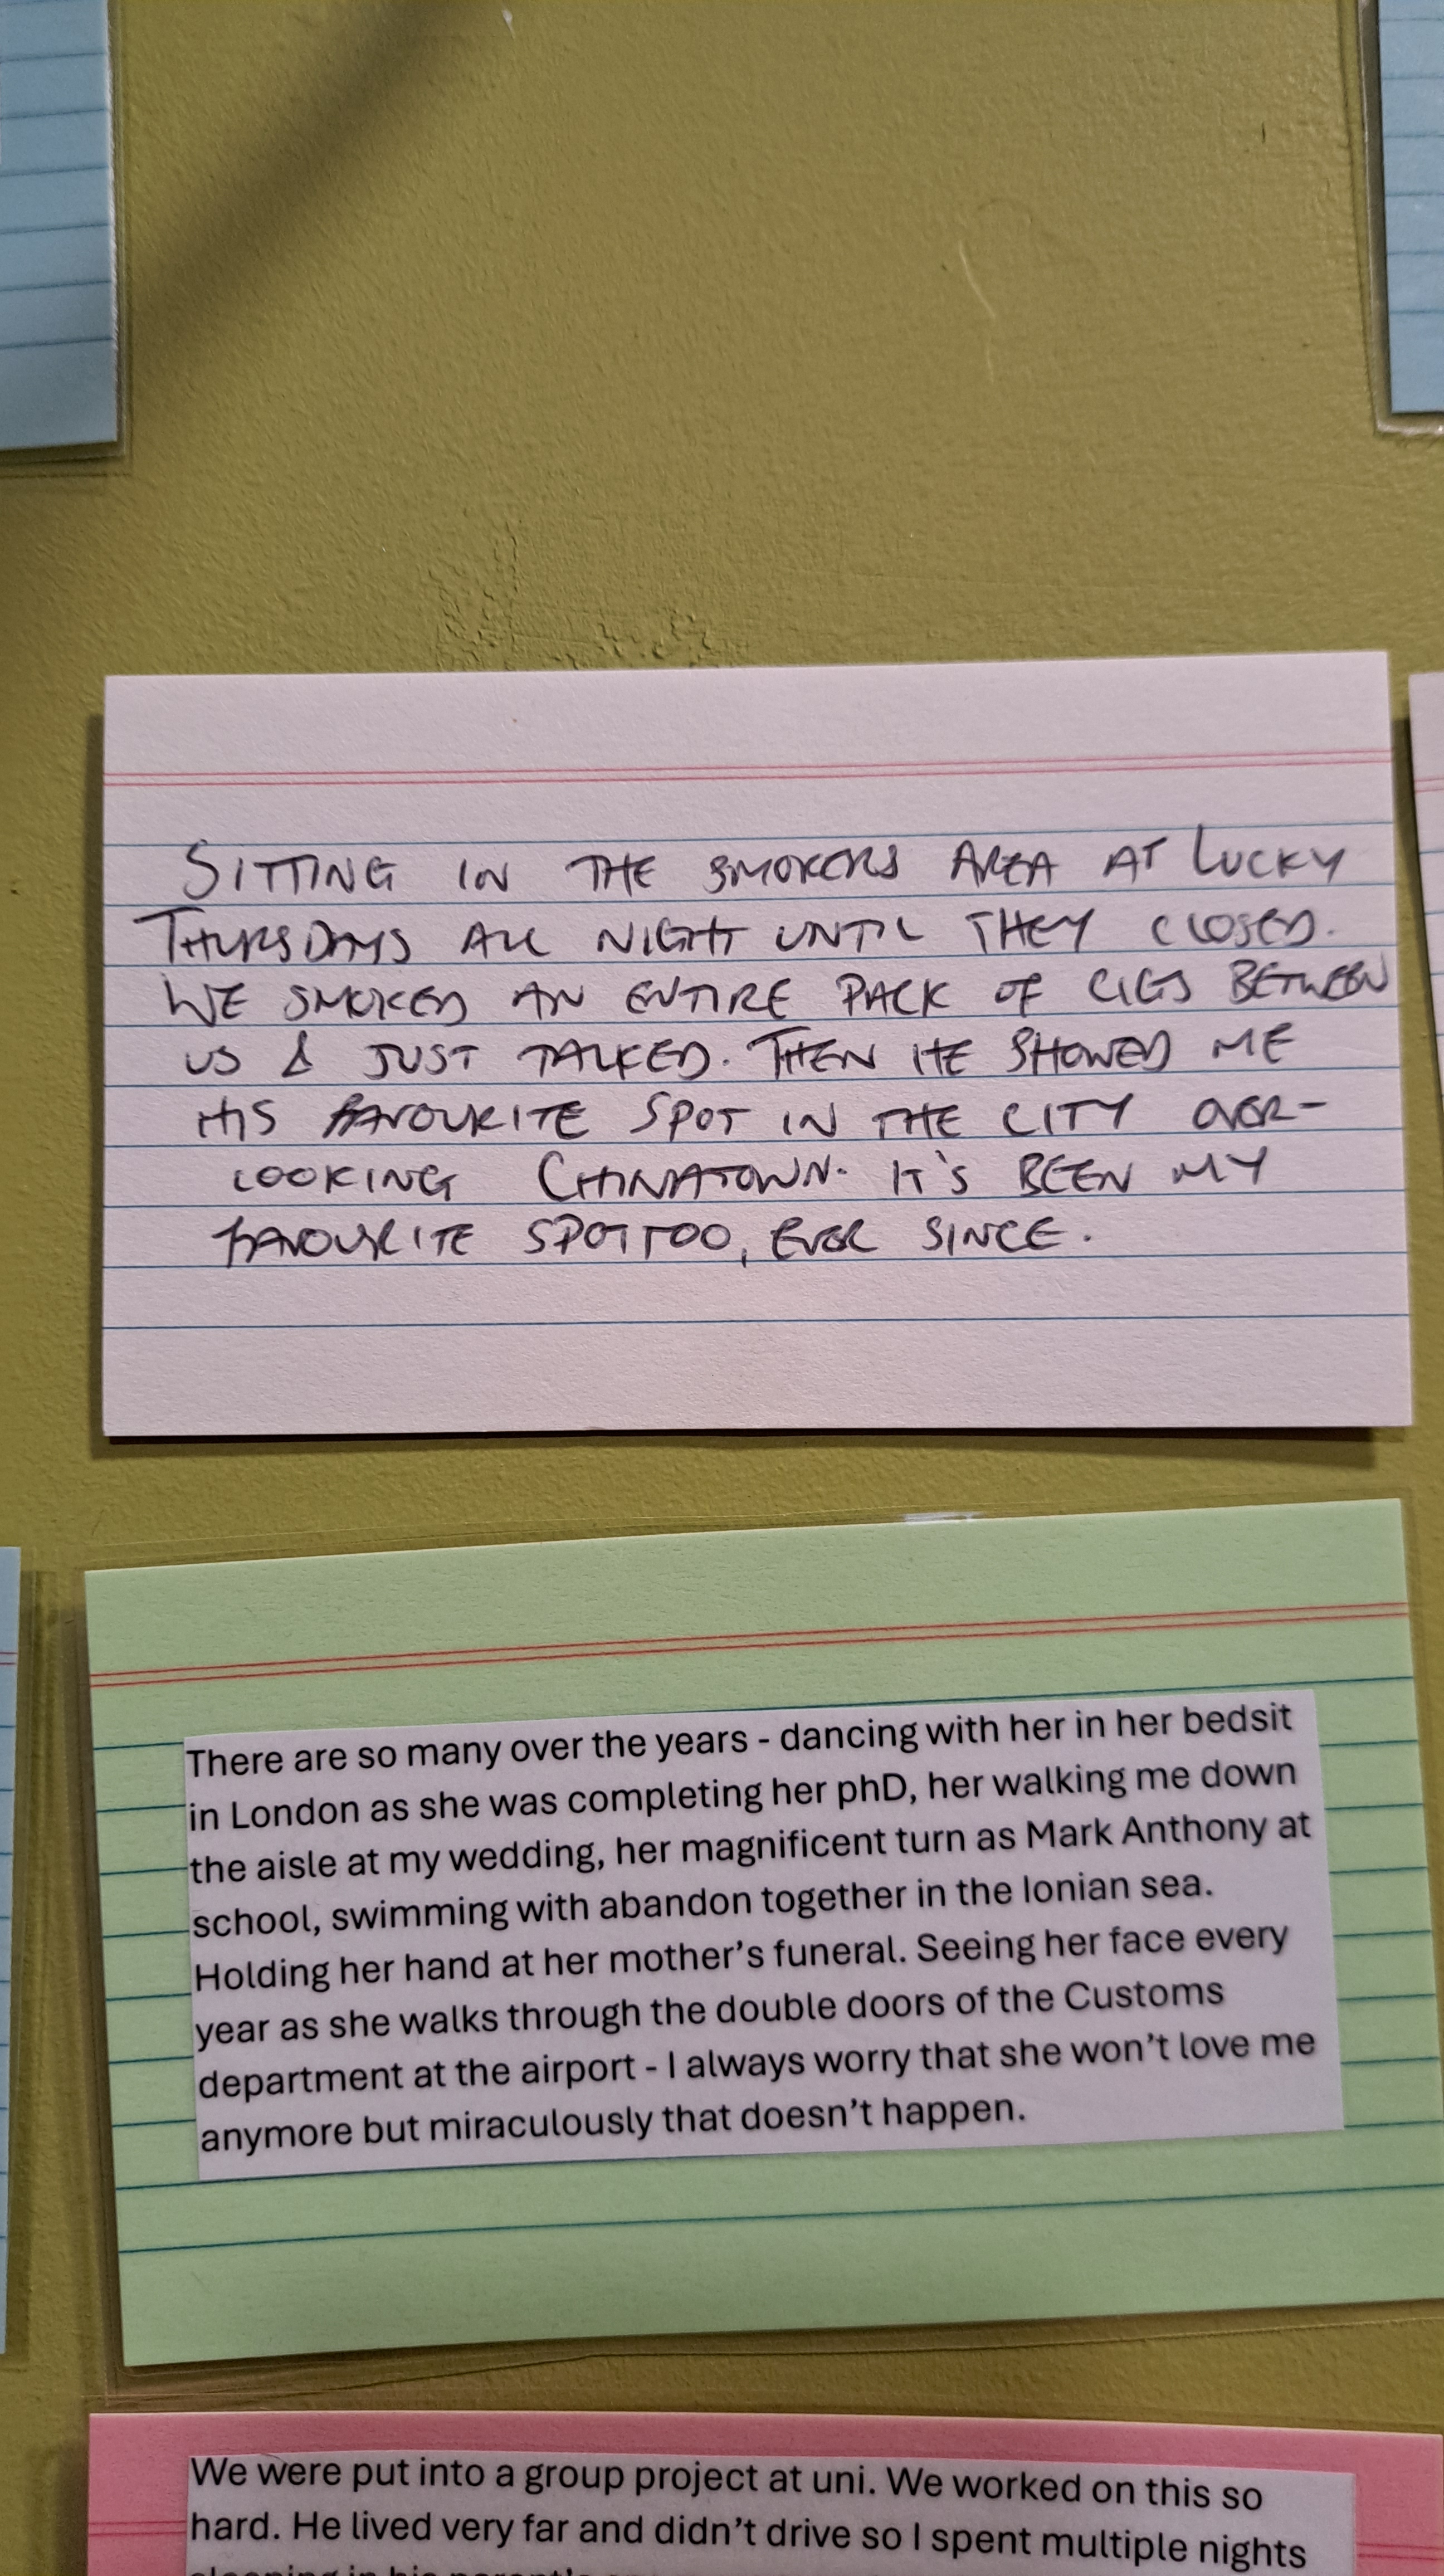 SITTING IN THE SMOKERS AREA AT LUCKY
THURSDAYS ALL NIGHT UNTIL THEY CLOSED.
WE SMOKED AN ENTIRE PACK OF CIGS BETWEEN
US & JUST TALKED. THEN HE SHOWED ME
HIS FAVOURITE SPOT IN THE CITY OVER-
LOOKING CHINATOWN. IT'S BEEN MY
FAVOURITE SPOT TOO, EVER SINCE.
There are so many over the years - dancing with her in her bedsit
in London as she was completing her phD, her walking me down
the aisle at my wedding, her magnificent turn as Mark Anthony at
school, swimming with abandon together in the Ionian sea.
Holding her hand at her mother's funeral. Seeing her face every
year as she walks through the double doors of the Customs
department at the airport - I always worry that she won't love me
anymore but miraculously that doesn't happen.
We were put into a group project at uni. We worked on this so
hard. He lived very far and didn't drive so I spent multiple nights